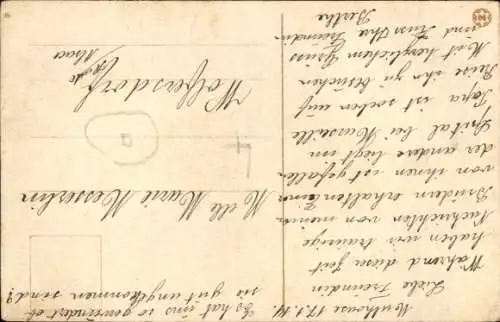 Mulhouse 17.1.14.
Liebe Freundin
Während dieser Zeit
haben wir traurige
Nachrichten von meinen
Brüdern erhalten
von ihnen ist gefallen
der andere liegt im
Spital bei Marseille
Papa ist soeben auf
Reise ihn zu besuchen
Mit herzlichem Gruss
und Kuss Ihre Freundin
Berthe
Es hat uns so gewundert ob
sie gut angekommen sind?
M elle Marie Messerlin
Wolfersdorf
Alsace